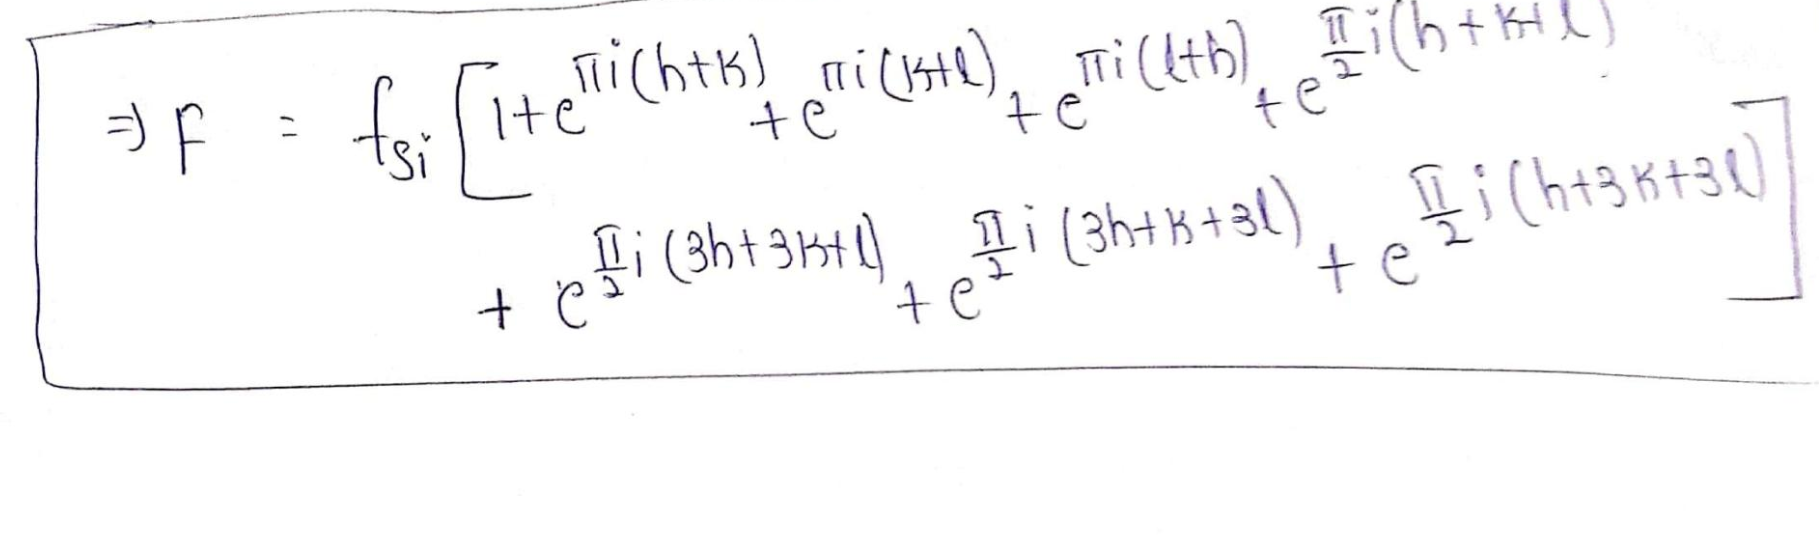 ⇒ F = f_Si [1 + e^{πi(h+k)} + e^{πi(k+l)} + e^{πi(l+h)} + e^{π/2 i(h+k+l)}
+ e^{π/2 i(3h+3k+l)} + e^{π/2 i(3h+k+3l)} + e^{π/2 i(h+3k+3l)}]